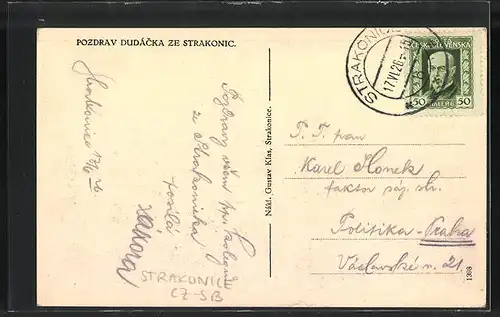 POZDRAV DUDÁČKA ZE STRAKONIC.
Strakonice 17/6 26
Pozdrav všem
ze Strakonicka
posílá
STRAKONICE
CZ-SB
Nákl. Gustav Klas, Strakonice.
STRAKONICE
17.VI.26
ČESKOSLOVENSKA
50 HALÉŘŮ 50
P. T. pan
Karel
faktor sáz. str.
Politika-Praha
Václavské n. 21.
1308